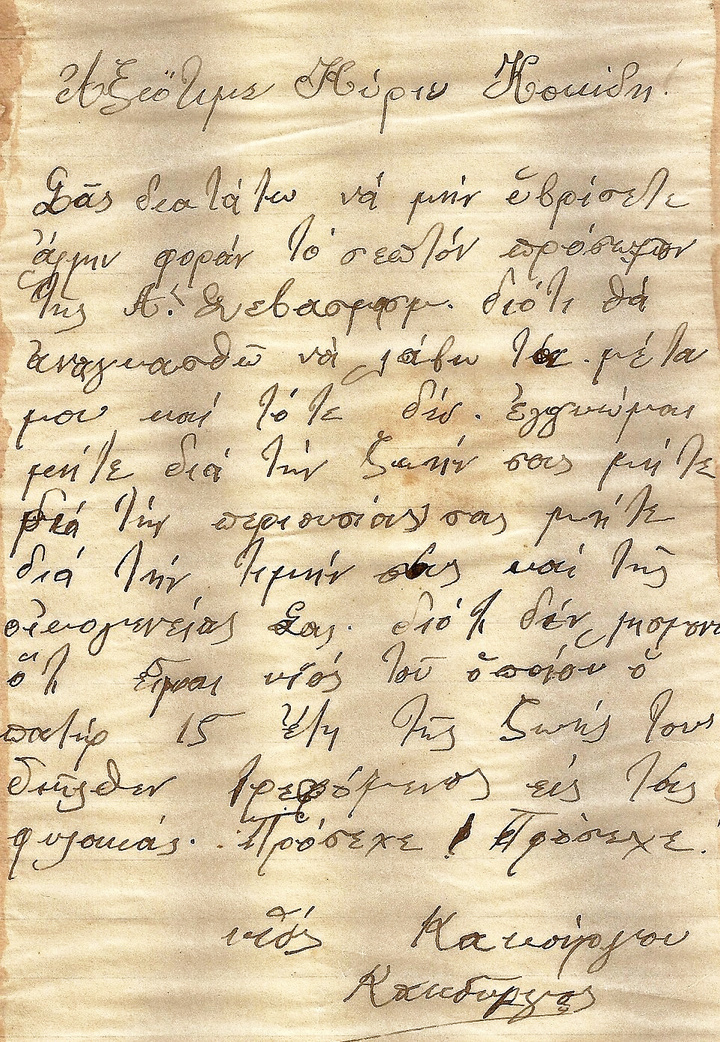 Ἀξιότιμε Κύριε Κοκίδη!
Σᾶς διατάτω νά μήν ὑβρίσετε
ἄλλην φοράν τό σεπτόν πρόσωπον
τῆς Α. Σεβασμιοτ. διότι θά
ἀναγκασθῶ νά λάβω τα μέτα
μου καί τότε δέν ἐγγυῶμαι
μήτε διά τήν ζωήν σας μήτε
διά τήν περιουσίας σας μήτε
διά τήν τιμήν σας καί τῆς
οἰκογενείας Σας. διότι δέν λησμονῶ
ὅτι εἶμαι υἱός τοῦ ὁποίου ὁ
πατήρ 15 ἔτη τῆς ζωῆς τους
διῆλθεν τρεφόμενος εἰς τάς
φυλακάς. Πρόσεχε! Πρόσεχε!
υἱός Κακούργου
Κακοῦργος